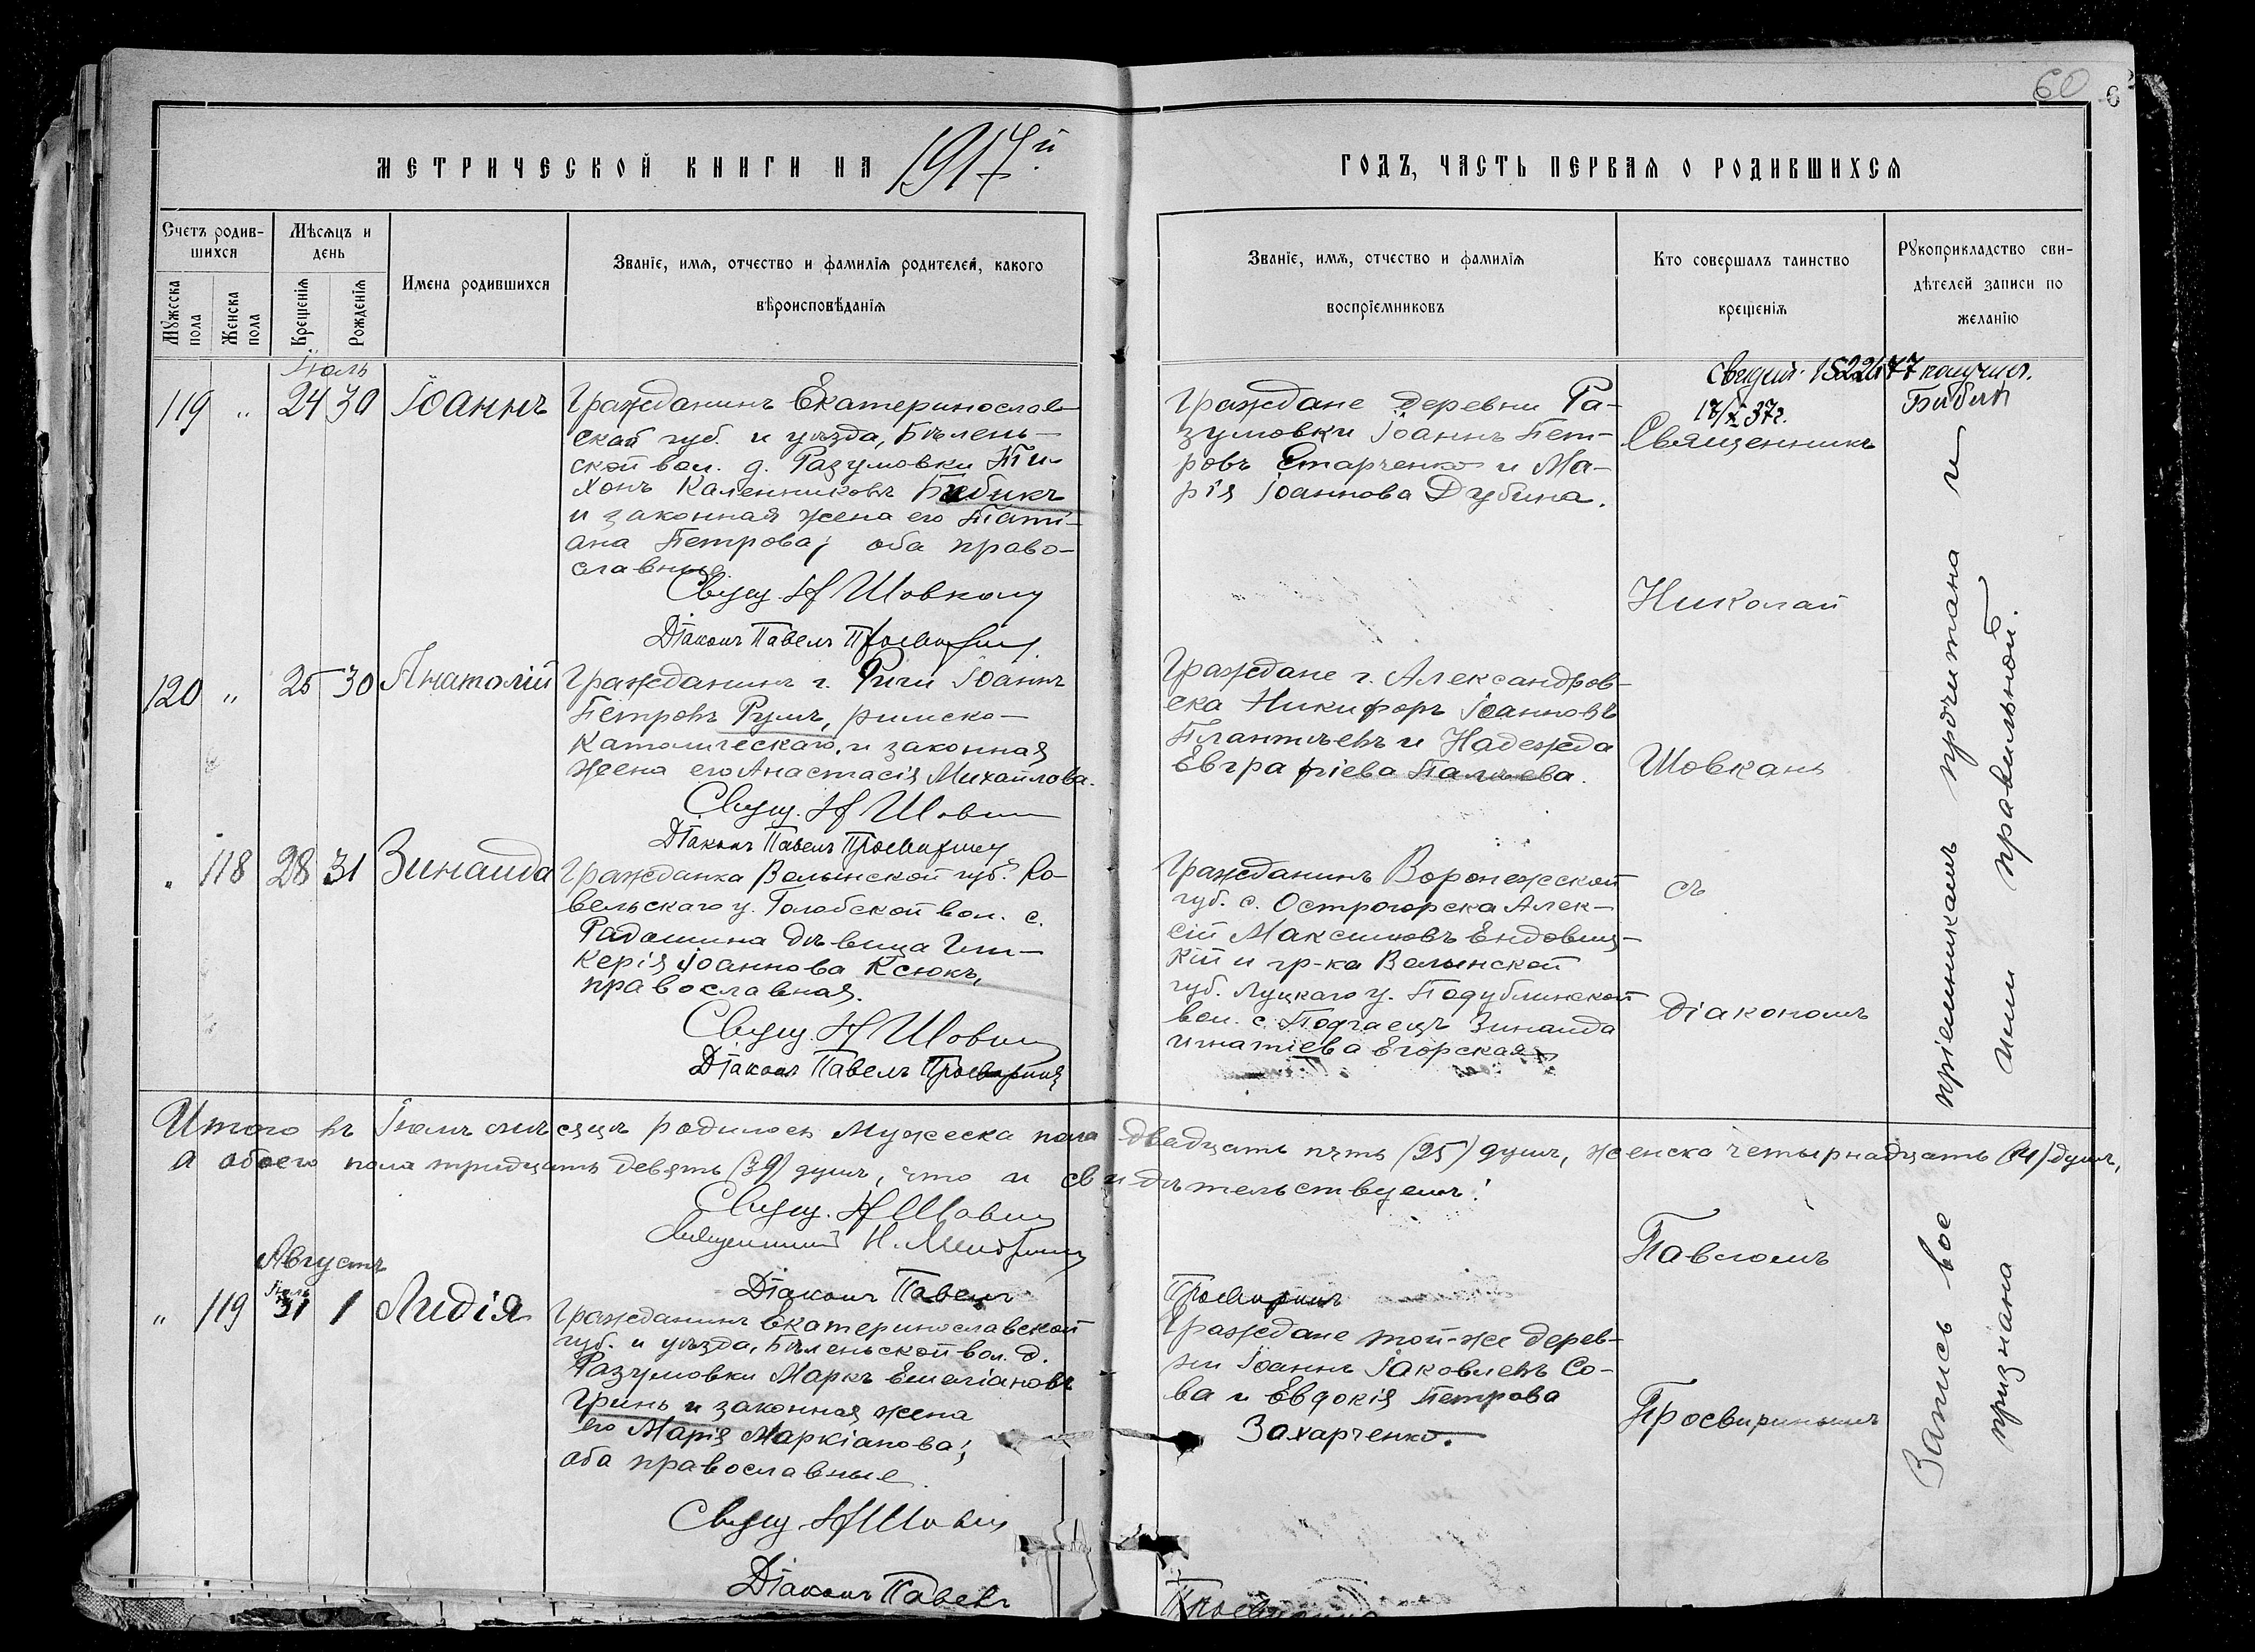 60
6
МЕТРИЧЕСКОЙ КНИГИ НА 1917й
ГОДЪ, ЧАСТЬ ПЕРВАЯ О РОДИВШИХСЯ
Счетъ родив-
шихся
Мужеска
пола
Женска
пола
Мѣсяцъ и
день
Крещенія
Рожденія
Имена родившихся
Званіе, имя, отчество и фамилія родителей, какого
вѣроисповѣданія
Званіе, имя, отчество и фамилія
воспріемниковъ
Кто совершалъ таинство
крещенія
Рукоприкладство сви-
дѣтелей записи по
желанію
Іюль
119 „ 24 30 Іоаннъ
Гражданинъ Екатеринослав-
ской губ. и уѣзда, Бѣлень-
ской вол. д. Разумовки Ти-
хонъ Каленниковъ Бибикъ
и законная жена его Таті-
ана Петрова; оба право-
славные.
Свящ. Н Шовкань
Діаконъ Павелъ Просвиринъ
Граждане деревни Ра-
зумовки Іоаннъ Пет-
ровъ Старченко и Ма-
рія Іоаннова Дубина.
17/X 37г.
Бибик
120 „ 25 30 Анатолій
Гражданинъ г. Риги Іоаннъ
Петровъ Румъ, римско-
католическаго, и законная
жена его Анастасія Михайлова.
Свящ. Н Шовкань
Діаконъ Павелъ Просвиринъ
Граждане г. Александров-
ска Никифоръ Іоанновъ
и Надежда
Евграфіева
„ 118 28 31 Зинаида
Гражданка Волынской губ. Ко-
вельскаго у. Голобской вол. с.
Радошина дѣвица Гли-
керія Іоаннова Ксюкъ,
православная.
Свящ. Н Шовкань
Діаконъ Павелъ Просвиринъ
Гражданинъ Воронежской
губ. с. Острогорска Алек-
сій Максимовъ Ендовиц-
кій и гр-ка Волынской
губ. Луцкаго у.
вол. с. Подгаецъ Зинаида
Игнатіева Егорская
Итого въ Іюлѣ мѣсяцѣ родилось Мужеска пола двадцать пять (25) душъ, женска четырнадцать (14) душъ,
а обоего пола тридцать девять (39) душъ, что и свидѣтельствуемъ:
Свящ. Н Шовкань
Священникъ Н.
Діаконъ Павелъ Просвиринъ
Августъ
Іюль
„ 119 31 1 Лидія
Гражданинъ Екатеринославской
губ. и уѣзда, Бѣленьской вол. д.
Разумовки Маркъ Емеліановъ
Гринь и законная жена
его Марія Маркіанова;
оба православные.
Свящ. Н Шовкань
Діаконъ Павелъ
Просвиринъ
Граждане той-же дерев-
ни Іоаннъ Іаковлевъ Со-
ва и Евдокія Петрова
Захарченко.
Священникъ
Николай
Шовкань
съ
діакономъ
Павломъ
Просвиринымъ
Запись вос пріемникамъ прочитана и
признана ими правильной.